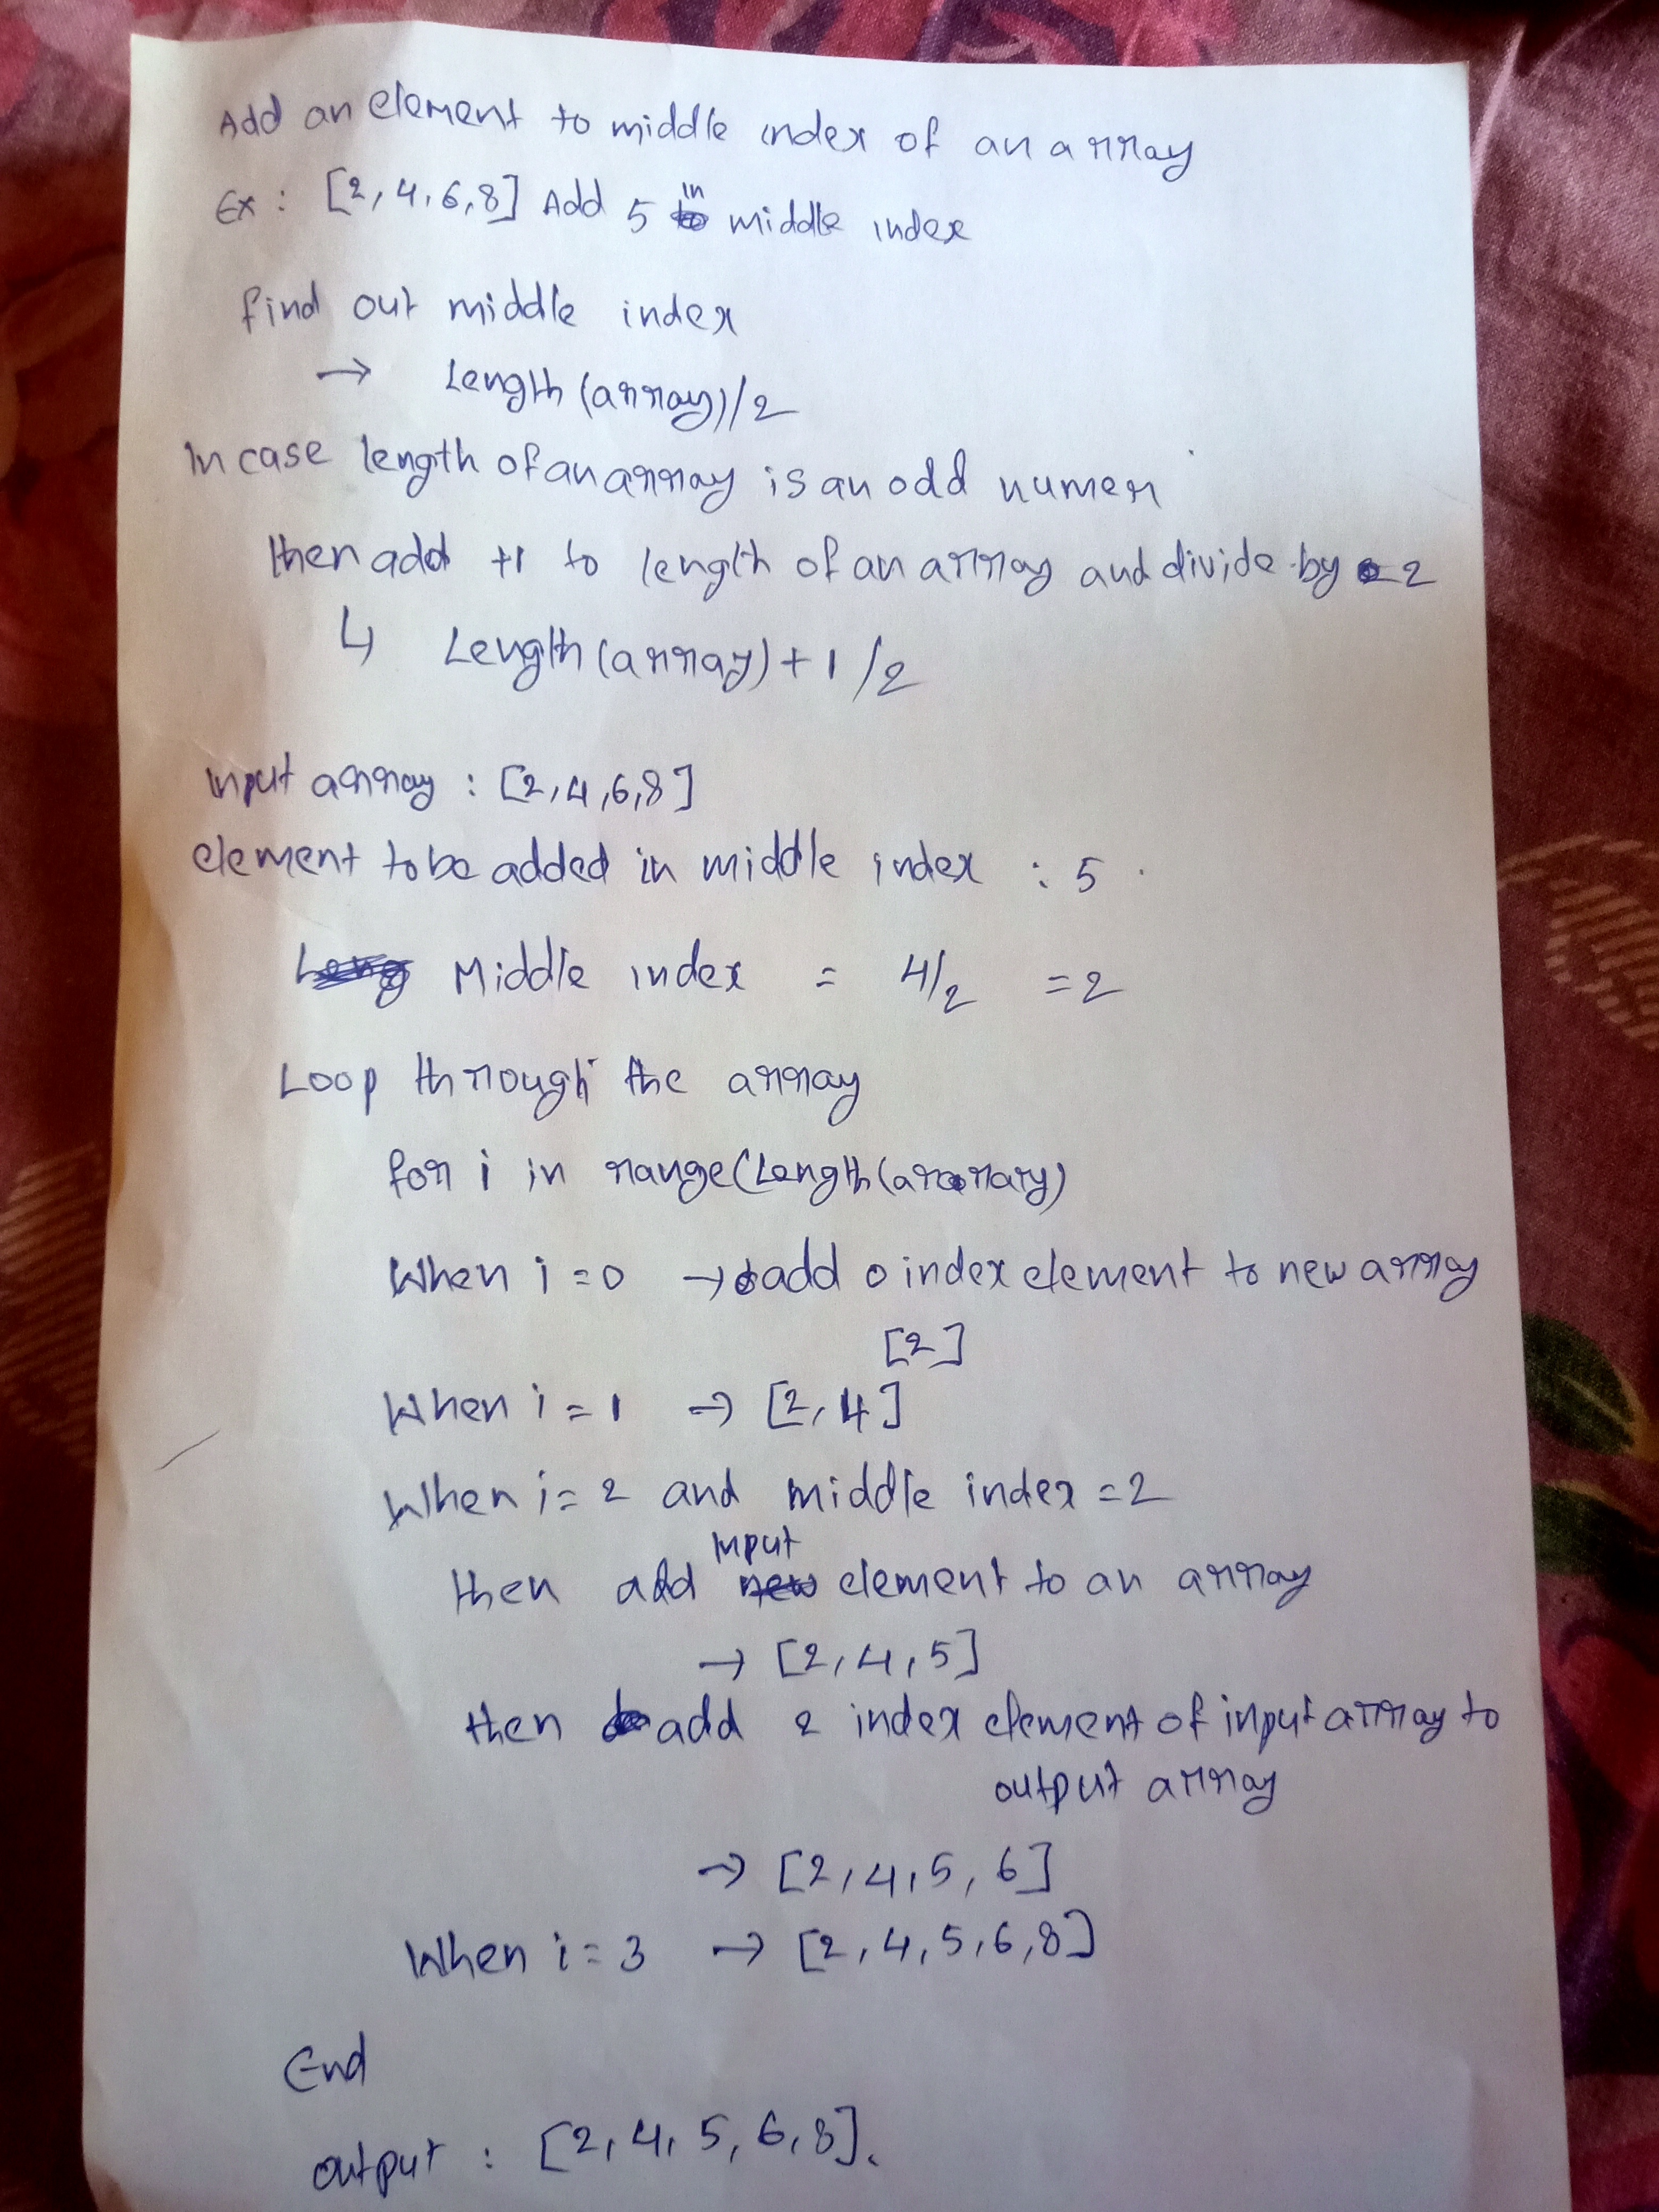 Add an element to middle index of an array
Ex : [2, 4, 6, 8] Add 5 in middle index
find out middle index
→ Length (array)/2
In case length of an array is an odd numer
then add +1 to length of an array and divide by 2
↳ Length (array) + 1 /2
Input array : [2, 4, 6, 8]
element to be added in middle index : 5
Middle index = 4/2 = 2
Loop through the array
for i in range(Length(array)
When i = 0 → add 0 index element to new array
[2]
When i = 1 → [2, 4]
When i = 2 and middle index = 2
then add input element to an array
→ [2, 4, 5]
then add 2 index element of input array to
output array
→ [2, 4, 5, 6]
When i = 3 → [2, 4, 5, 6, 8]
End
output : [2, 4, 5, 6, 8].